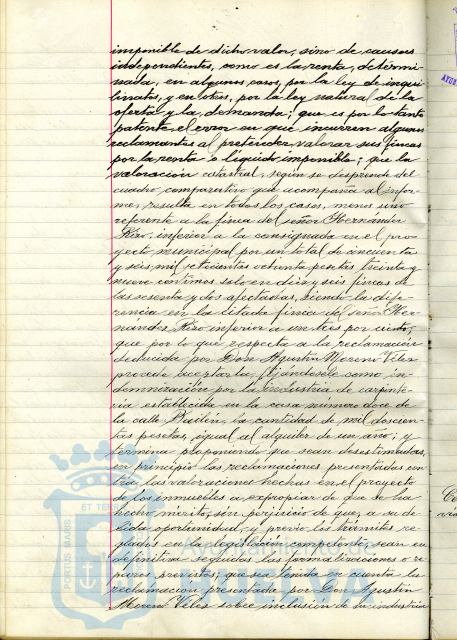 imponible de dicho valor, sino de causas
independientes, como es la renta, determi-
nada, en algunos casos, por la ley de inqui-
linatos, y en otros, por la ley natural de la
oferta y la demanda; que es por lo tanto
patente el error en que incurren algunos
reclamantes al pretender valorar sus fincas
por la renta o líquido imponible; que la
valoración catastral, según se desprende del
cuadro comparativo que acompaña al infor-
me, resulta en todos los casos, menos uno
referente a la finca del señor Hernández
Rizo, inferior a la consignada en el pro-
yecto municipal por un total de cincuenta
y seis mil ochocientas ochenta pesetas treinta y
nueve céntimos solo en diez y seis fincas de
las sesenta y dos afectadas, siendo la dife-
rencia en la citada finca del señor Her-
nández Rizo inferior a un tres por ciento;
que por lo que respecta a la reclamación
deducida por Don Agustín Moreno Vélez
procede aceptarla, fijándosele como in-
demnización por la industria de carpinte-
ría establecida en la casa número doce de
la calle Bailén, la cantidad de mil doscien-
tas pesetas, igual al alquiler de un año; y
termina proponiendo que sean desestimadas,
en principio las reclamaciones presentadas con-
tra las valoraciones hechas en el proyecto
de los inmuebles a expropiar de que se ha
hecho mérito, sin perjuicio de que, a su de-
bida oportunidad, y previo los trámites re-
glados en la legislación competente, sean en
definitiva seguidas las formalizaciones o re-
paros previstos; que sea tenida en cuenta la
reclamación presentada por Don Agustín
Moreno Vélez sobre inclusión de su industria
Ayuntamiento de